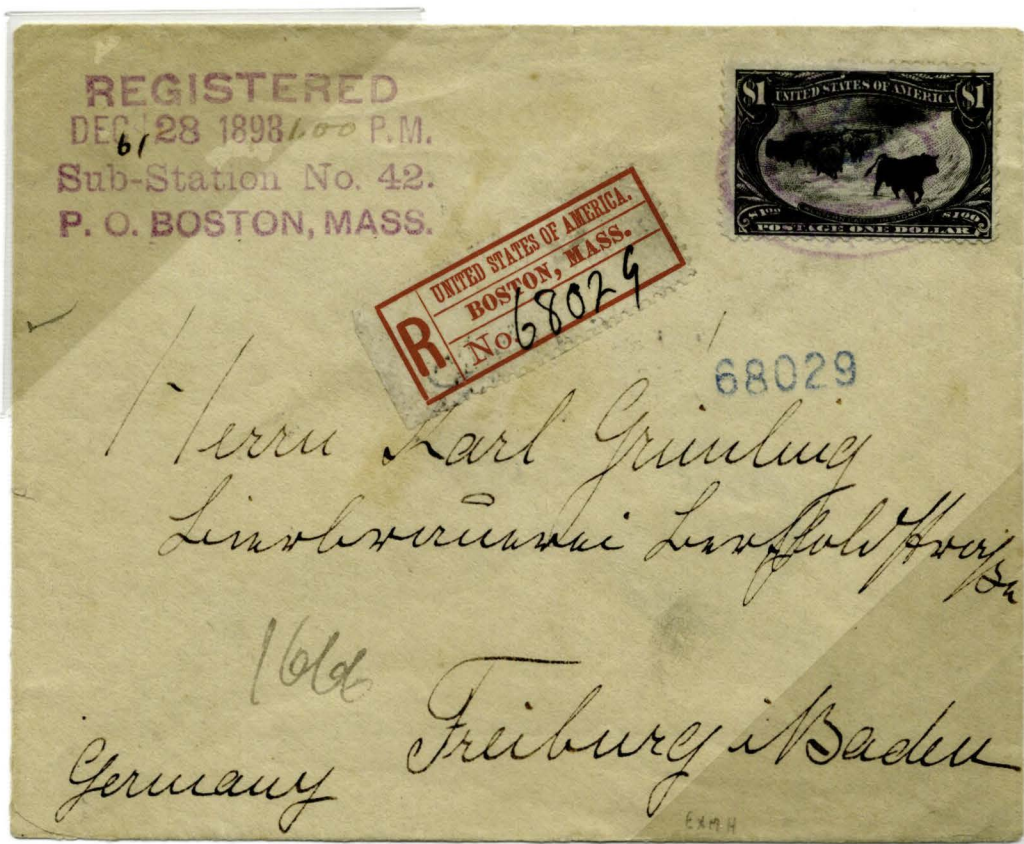 REGISTERED
DEC 28 1898 600 P.M.
61
Sub-Station No. 42.
P. O. BOSTON, MASS.
$1 UNITED STATES OF AMERICA $1
$1.00 $1.00
POSTAGE ONE DOLLAR
UNITED STATES OF AMERICA.
BOSTON, MASS.
R No. 68029
68029
Herrn Karl Grimling
Bierbrauerei Bertholdstraße
Freiburg i Baden
Germany
EXMH